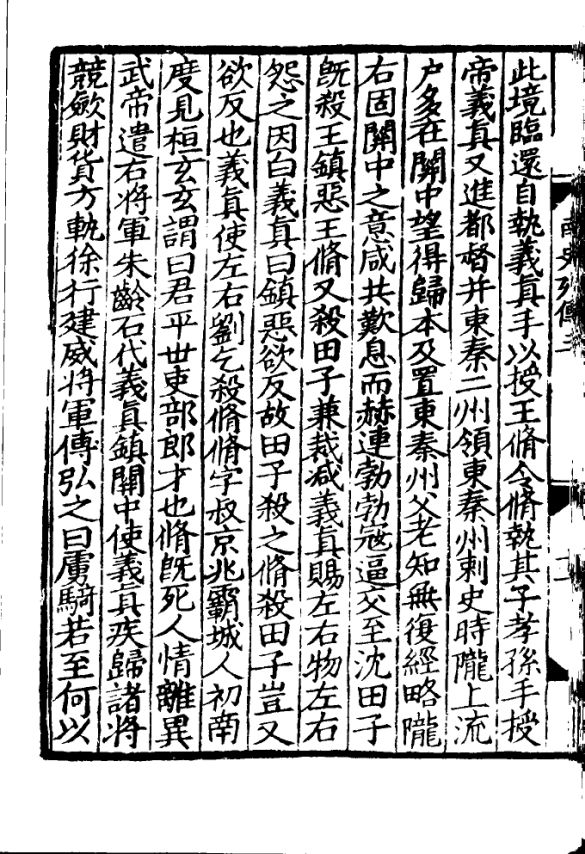 此境臨還自執義真手以授王脩令脩執其子孝孫手授
帝義真又進都督并東秦二州領東秦州刺史時隴上流
户多在關中望得歸本及置東秦州父老知無復經略隴
右固關中之意咸共歎息而赫連勃勃寇逼交至沈田子
既殺王鎮惡王脩又殺田子兼裁减義真賜左右物左右
怨之因白義真曰鎮惡欲反故田子殺之脩殺田子豈又
欲反也義真使左右劉乞殺脩脩字叔京兆霸城人初南
度見桓玄玄謂曰君平世吏部郎才也脩既死人情離異
武帝遣右將軍朱齡石代義真鎮關中使義真疾歸諸將
競斂財貨方軌徐行建威將軍傅弘之曰虜騎若至何以